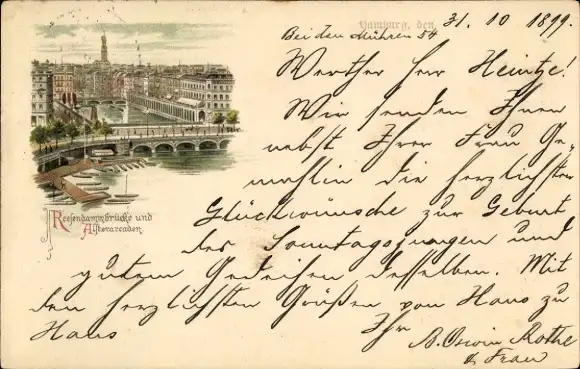 Hamburg, den 31. 10 1899.
Bei den Mühren 54
Werther Herr Heintze!
Wir senden Ihnen
nebst Ihrer Frau Ge-
mahlin die herzlichsten
Glückwünsche zur Geburt
des Sonntagsjungen und
gutem Gedeihen desselben. Mit
den herzlichsten Grüßen von Haus zu
Haus
Ihr
B. Oscar Rothe
& Frau
Reesendammbrücke und
Alsterarcaden.